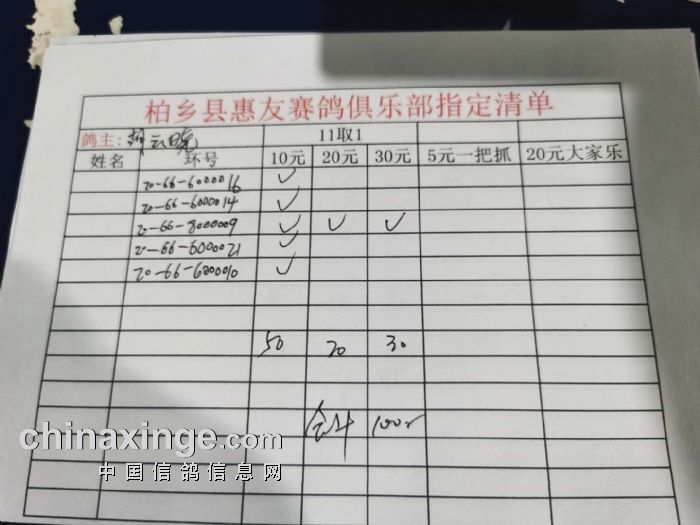 柏乡县惠友赛鸽俱乐部指定清单
鸽主: 云晓 11取1
姓名 环号 10元 20元 30元 5元一把抓 20元大家乐
20-66-6000016 ✓
20-66-6000014 ✓
20-66-8000009 ✓ ✓ ✓
20-66-6000021 ✓
20-66-6000010 ✓
50 20 30
合计 100
chinaxinge.com
中国信鸽信息网